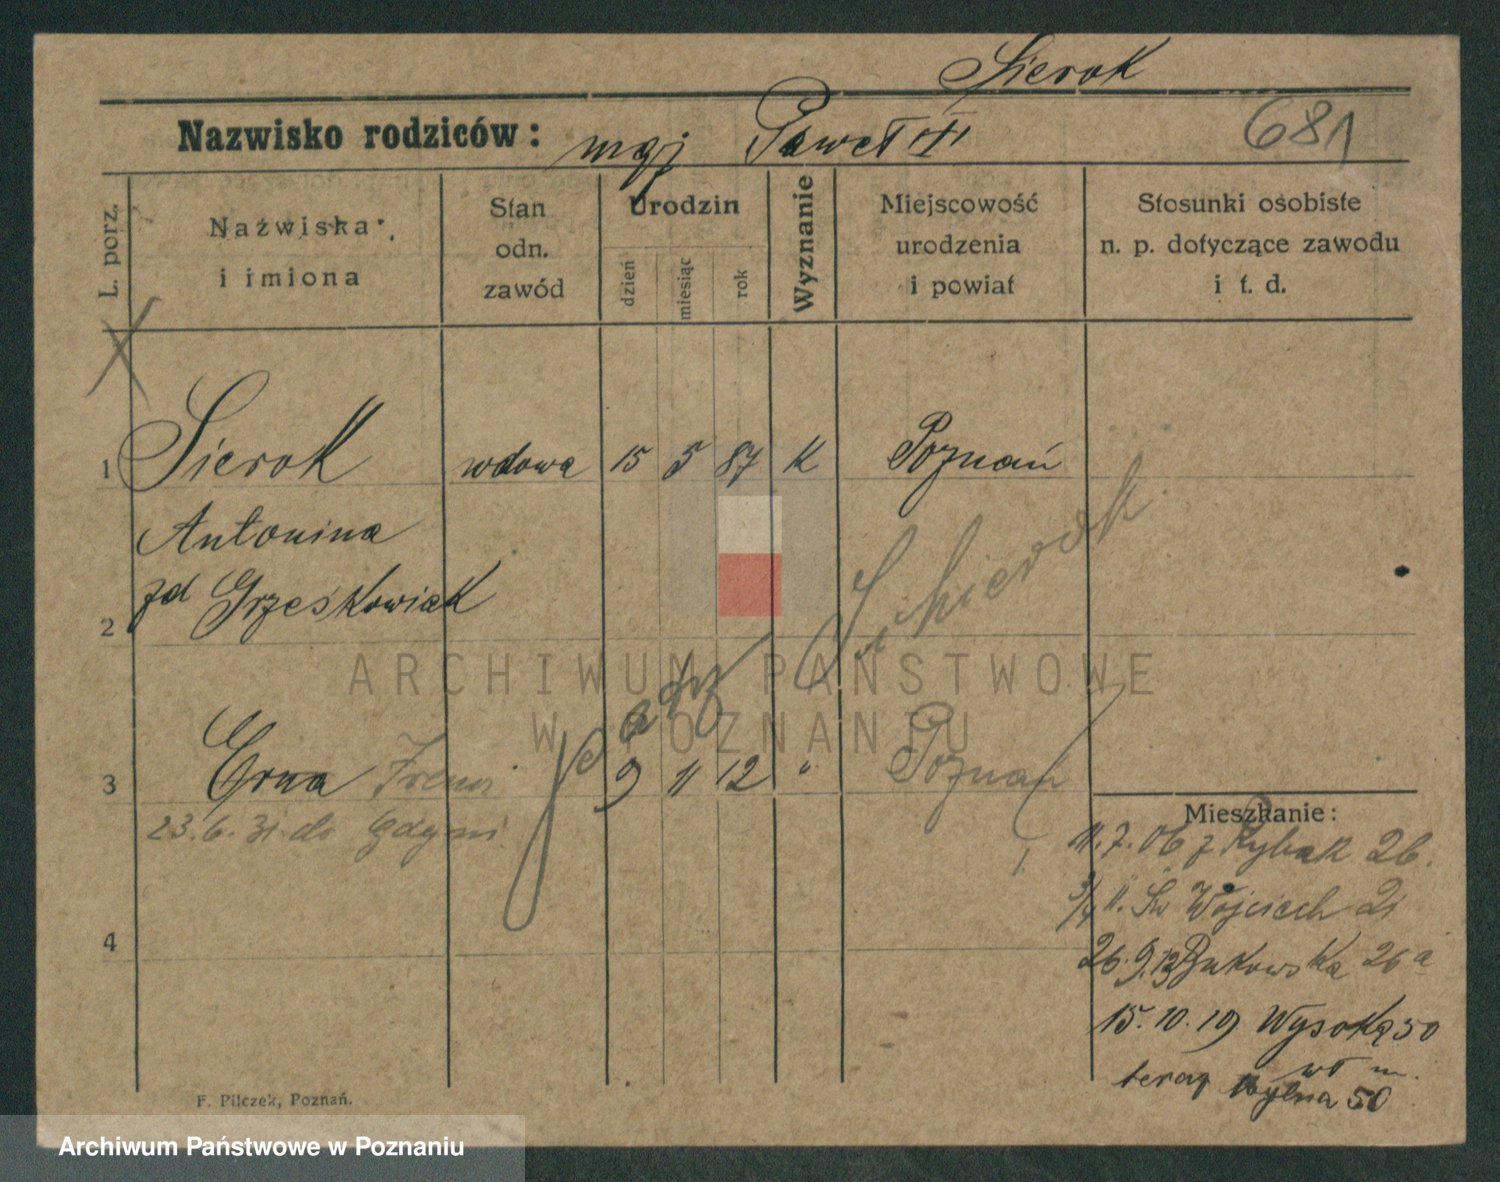 Sierok
Nazwisko rodziców: mąż Paweł
681
L. porz.
Nazwiska i imiona
Stan odn. zawód
Urodzin
dzień
miesiąc
rok
Wyznanie
Miejscowość urodzenia i powiat
Stosunki osobiste n. p. dotyczące zawodu i t. d.
1 Sierok wdowa 15 5 87 K Poznań
Antonina
2 zd Grześkowiak
3 Erna Irena 9 11 12 " Poznań
23.6.31. do Gdyni
4
Mieszkanie:
11.7.06 z Rybak 26.
Św Wojciech 21
26.9.13 Bukowska 26a
15.10.19 Wysoka 50
teraz Wylna 50
F. Pilczek, Poznań.
ARCHIWUM PAŃSTWOWE
W POZNANIU
Archiwum Państwowe w Poznaniu